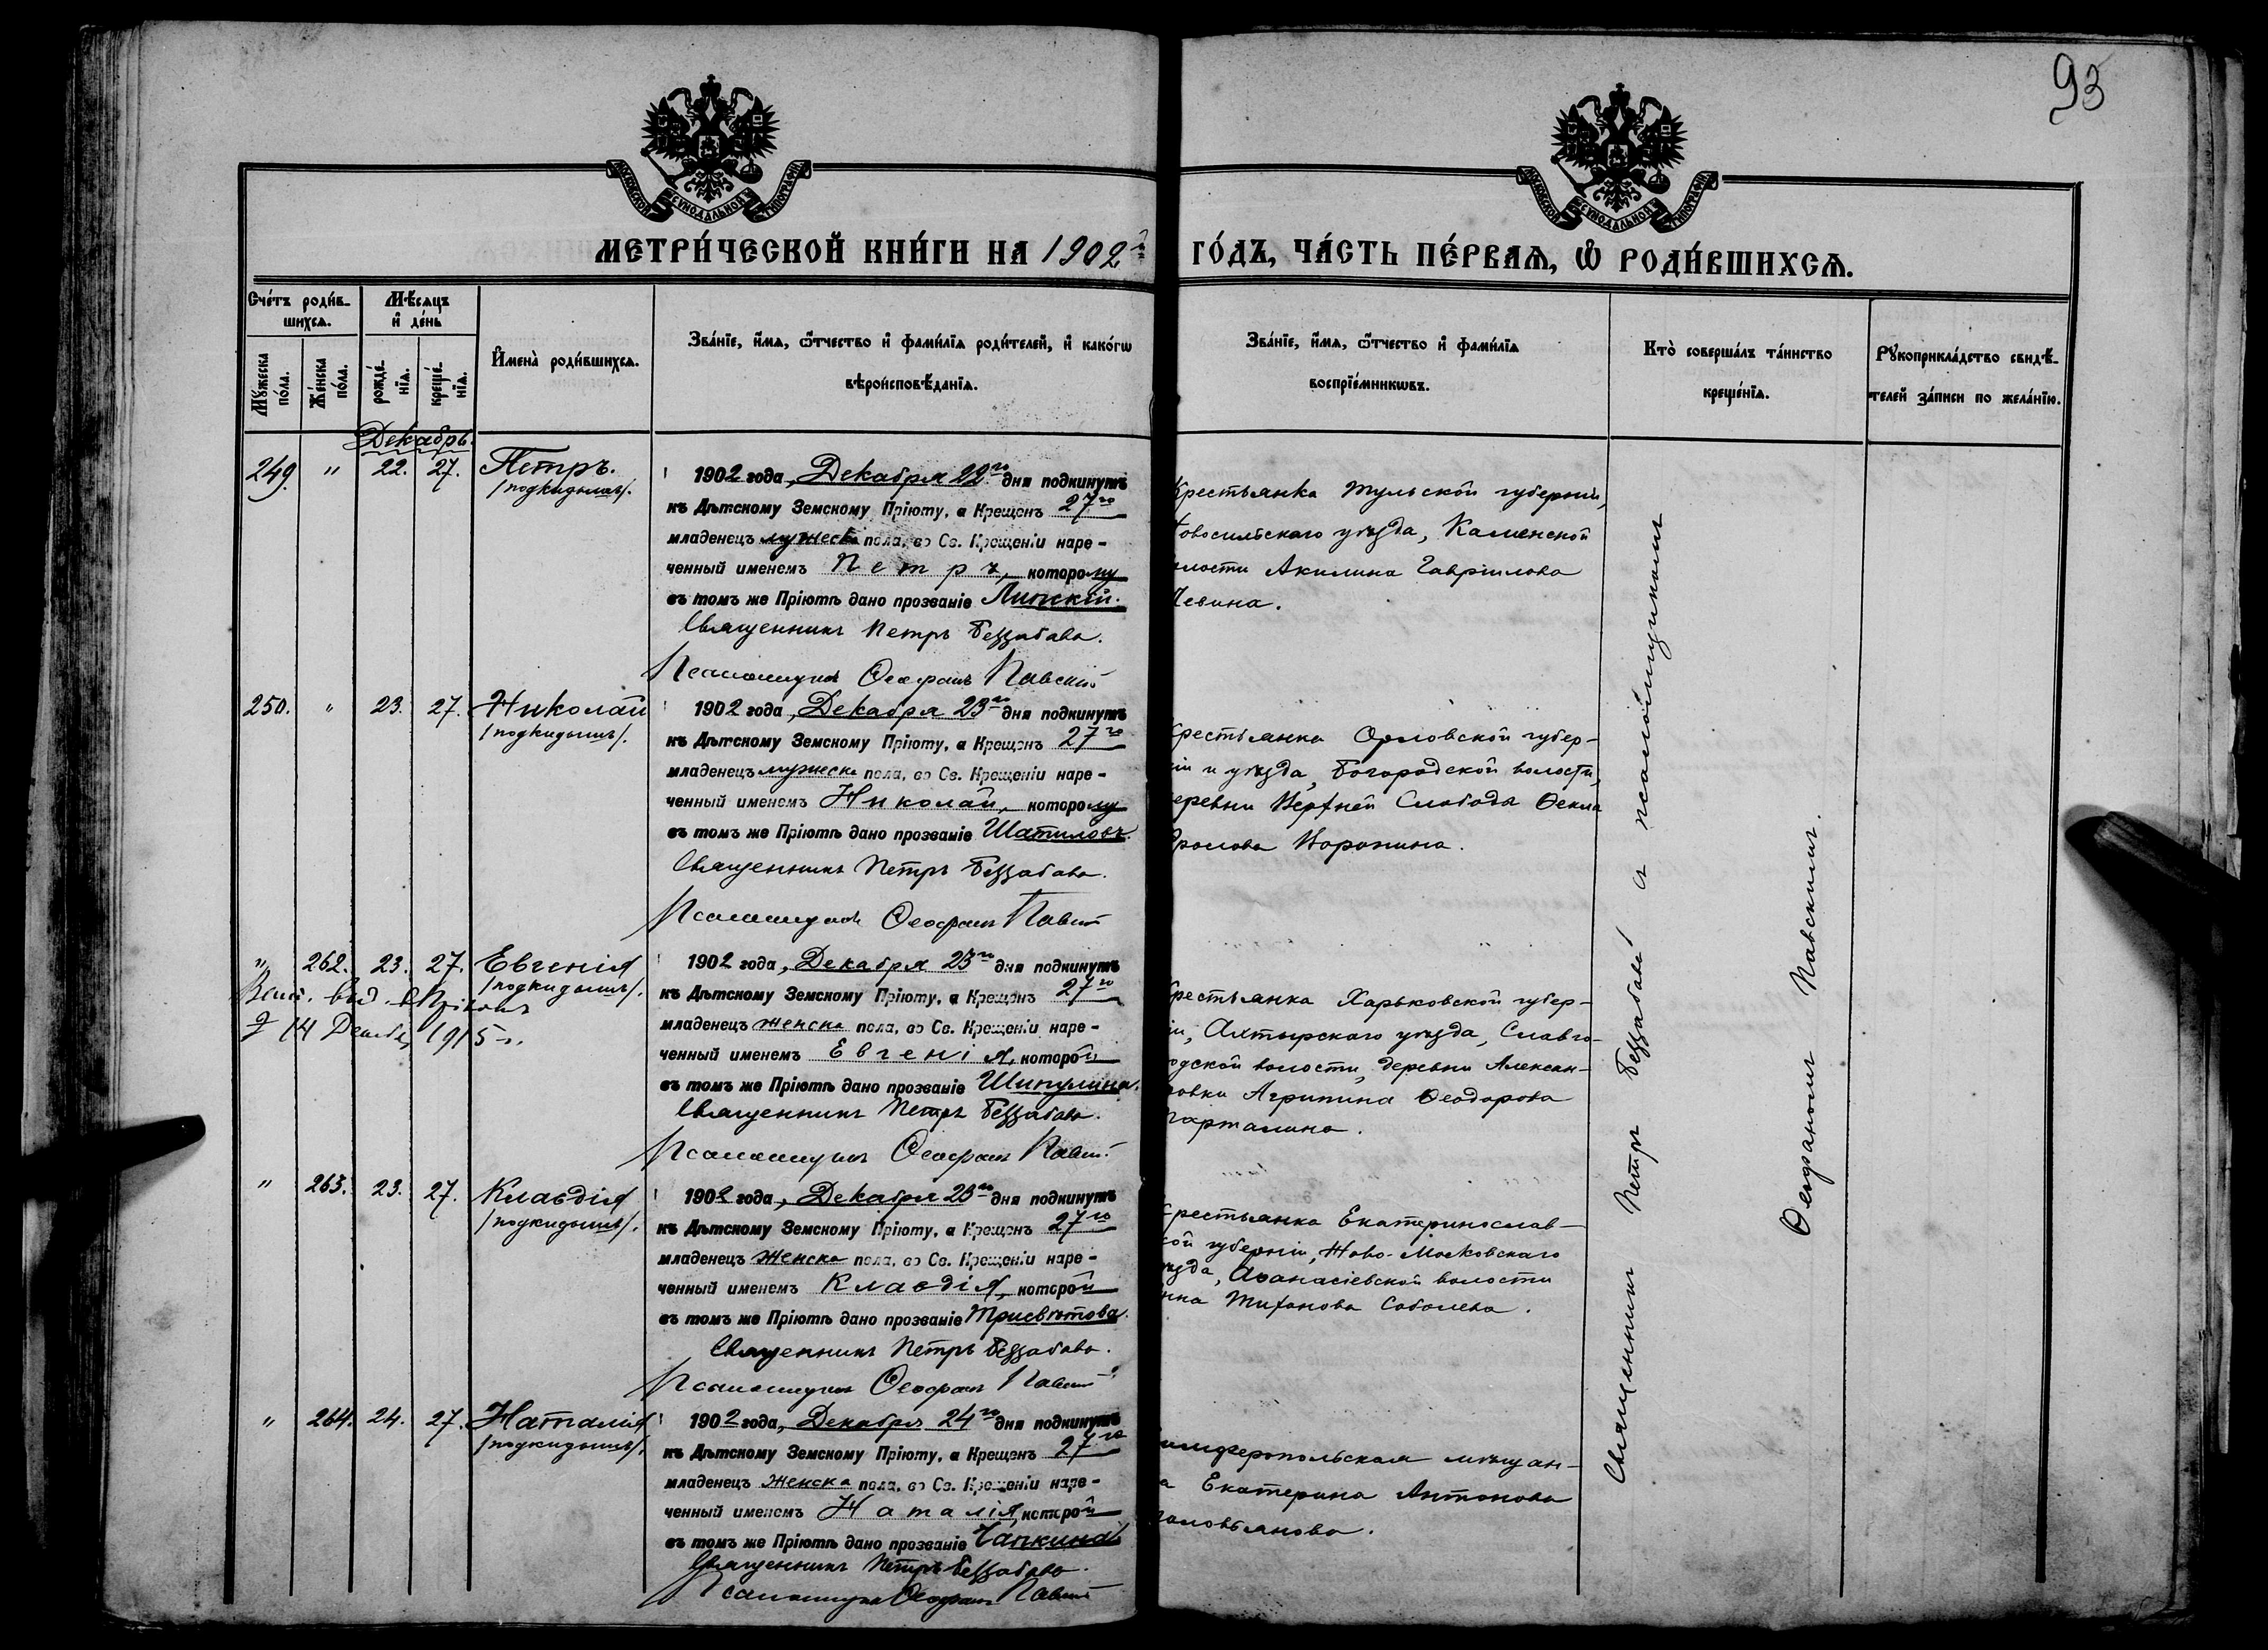 93
МОСКОВСКОЙ СУНОДАЛЬНОЙ ТИПОГРАФІИ
МОСКОВСКОЙ СУНОДАЛЬНОЙ ТИПОГРАФІИ
МЕТРИ́ЧЕСКОЙ КНИ́ГИ НА 1902й
ГО́ДЪ, ЧА́СТЬ ПЕ́РВАѦ, Ѡ҆ РОДИ́ВШИХСѦ.
Сче́тъ роди́в-
шихсѧ.
Му́жеска по́ла.
Же́нска по́ла.
Мѣ́сѧцъ
и҆ де́нь
рожде́-
нїѧ.
креще́-
нїѧ.
И҆мена̀ роди́вшихсѧ.
Зва́нїе, и҆́мѧ, ѻ҆́тчество и҆ фами́лїѧ роди́телей, и҆ како́гѡ
вѣроисповѣ́данїѧ.
Зва́нїе, и҆́мѧ, ѻ҆́тчество и҆ фами́лїѧ
воспрїе́мникѡвъ.
Кто̀ соверша́лъ та́инство
креще́нїѧ.
Рꙋкоприкла́дство свидѣ́-
телей за́писи по жела́нїю.
Декабрь.
249. " 22. 27. Петръ.
/подкидышъ/.
1902 года, Декабря 22го дня подкинутъ
къ Дѣтскому Земскому Пріюту, а Крещенъ 27го
младенецъ мужеска пола, во Св. Крещеніи наре-
ченный именемъ Петръ, которому
въ томъ же Пріютѣ дано прозваніе Липскій.
Священникъ Петръ Беззабава.
Псаломщикъ Ѳеофанъ Павскій
Крестьянка Тульской губерніи,
Новосильскаго уѣзда, Каменской
волости Акилина Гавріилова
250. " 23. 27. Николай
/подкидышъ/.
1902 года, Декабря 23го дня подкинутъ
къ Дѣтскому Земскому Пріюту, а Крещенъ 27го
младенецъ мужеска пола, во Св. Крещеніи наре-
ченный именемъ Николай, которому
въ томъ же Пріютѣ дано прозваніе Шатиловъ.
Священникъ Петръ Беззабава.
Псаломщикъ Ѳеофанъ Павскій
Крестьянка Орловской губер-
ніи и уѣзда, Богородской волости,
деревни Верхней Слободы Ѳекла
Фролова Воронина.
" 262. 23. 27. Евгенія
/подкидышъ/.
14 Декабр. 1915 г.
1902 года, Декабря 23го дня подкинутъ
къ Дѣтскому Земскому Пріюту, а Крещенъ 27го
младенецъ женска пола, во Св. Крещеніи наре-
ченный именемъ Евгенія, которой
въ томъ же Пріютѣ дано прозваніе Шипулина.
Священникъ Петръ Беззабава.
Псаломщикъ Ѳеофанъ Павскій
Крестьянка Харьковской губер-
ніи, Ахтырскаго уѣзда, Славго-
родской волости, деревни Алексан-
ровки Агрипина Ѳеодорова
" 263. 23. 27. Клавдія
/подкидышъ/.
1902 года, Декабря 23го дня подкинутъ
къ Дѣтскому Земскому Пріюту, а Крещенъ 27го
младенецъ женска пола, во Св. Крещеніи наре-
ченный именемъ Клавдія, которой
въ томъ же Пріютѣ дано прозваніе Трисвѣтова.
Священникъ Петръ Беззабава.
Псаломщикъ Ѳеофанъ Павскій
Крестьянка Екатеринослав-
ской губерніи, Ново-Московскаго
уѣзда, Аѳанасіевской волости
Тихонова Соболева.
" 264. 24. 27. Наталія
/подкидышъ/.
1902 года, Декабря 24го дня подкинутъ
къ Дѣтскому Земскому Пріюту, а Крещенъ 27го
младенецъ женска пола, во Св. Крещеніи наре-
ченный именемъ Наталія, которой
въ томъ же Пріютѣ дано прозваніе Чапкина
Священникъ Петръ Беззабава.
Псаломщикъ Ѳеофанъ Павскій
Симферопольская мѣщан-
ка Екатерина Антонова
Священникъ Петръ Беззабава съ псаломщикомъ
Ѳеофаномъ Павскимъ.